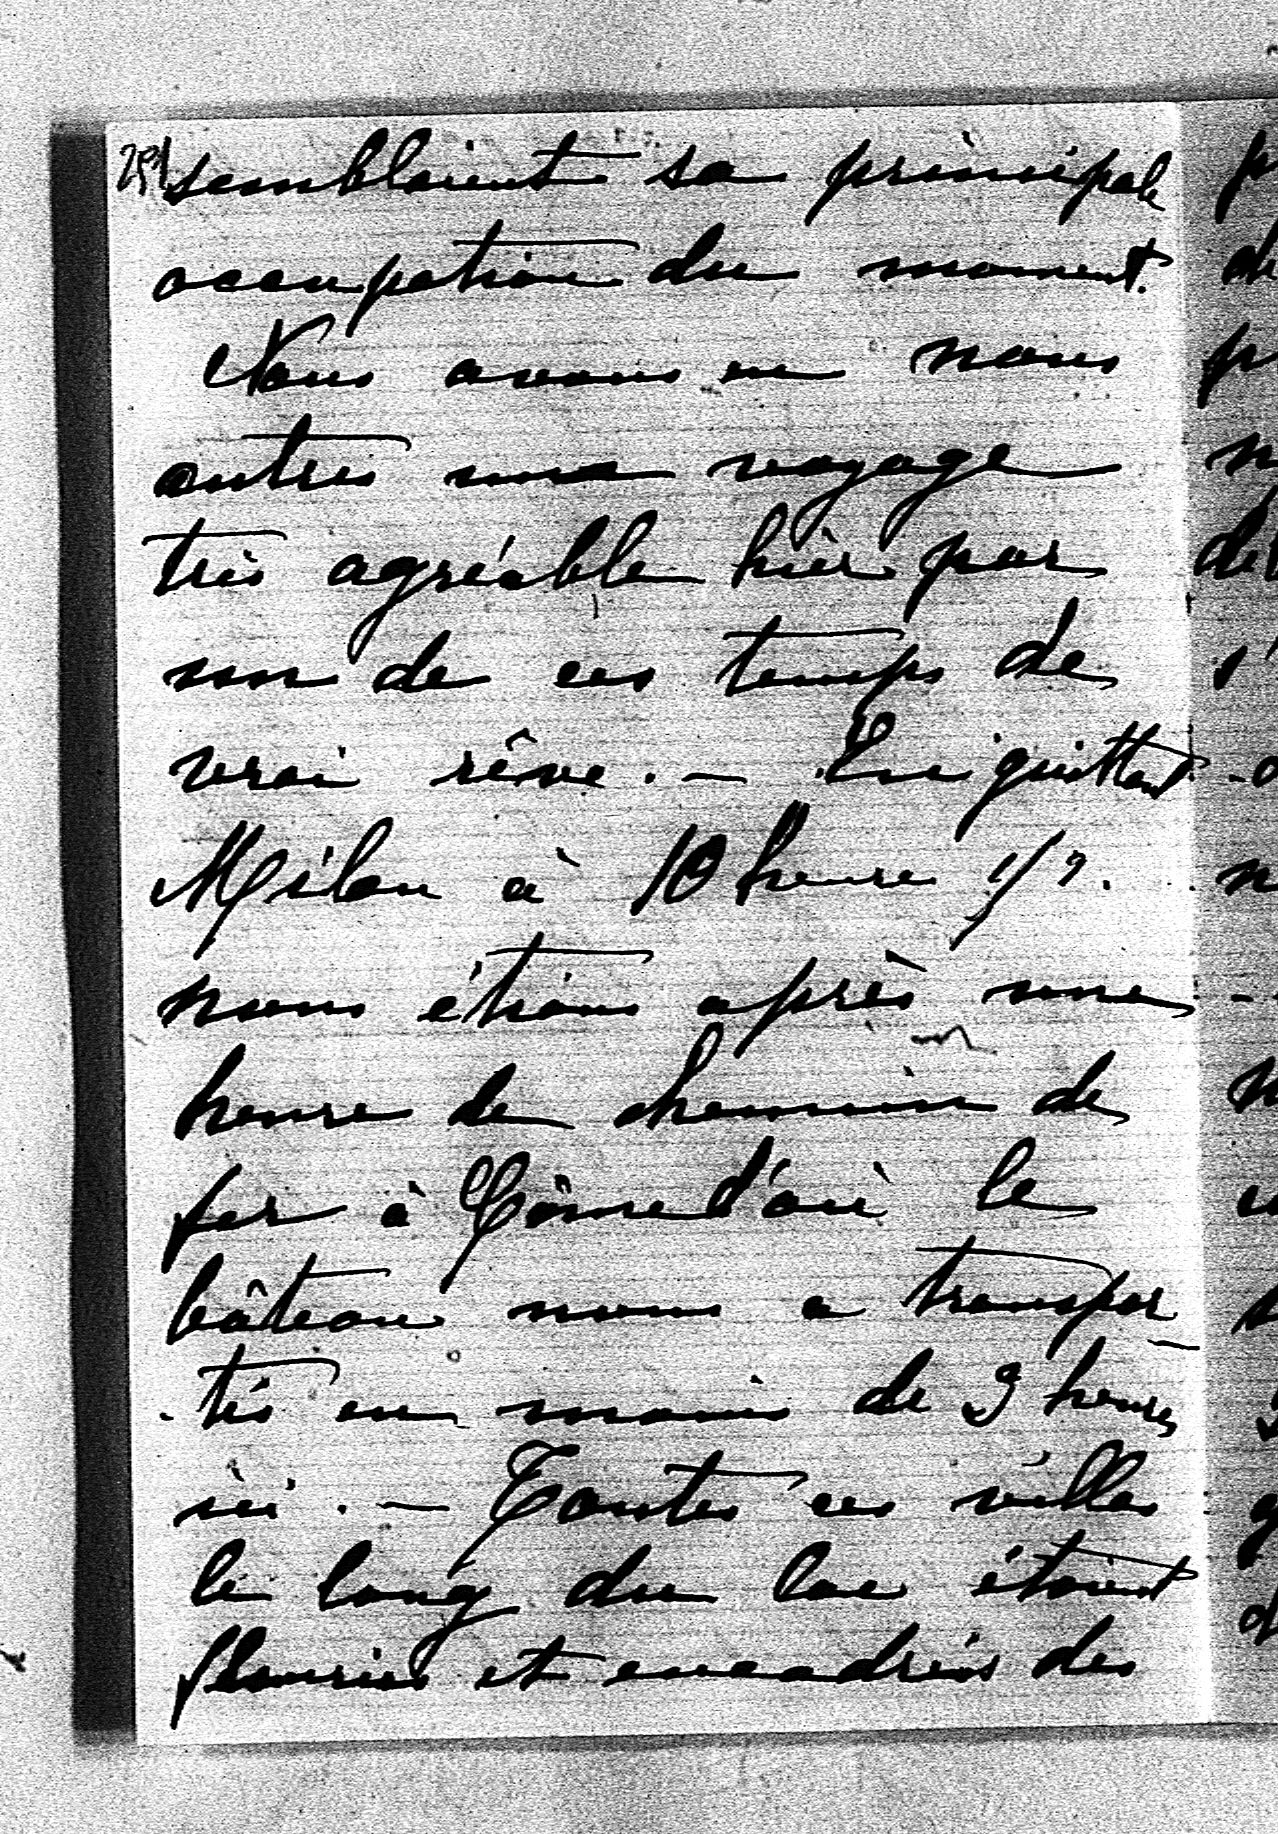 semblaient sa principale
occupation du moment.
Nous avons eu nous
autres un voyage
très agréable hier par
un de ces temps de
vrai rêve. — En quittant
Milan à 10 heure 1/2.
nous étions après une
heure de chemin de
fer à Côme d'où le
bâteau nous a transpor
-tés en moins de 3 heures
ici. — Toutes ces villas
le long du lac étaient
fleuries et encadrées des